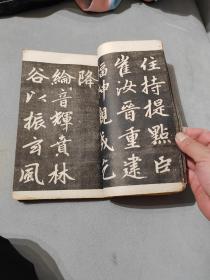 住持提點臣
崔汝晉重建
福神觀成乞
降
綸音輝賁林
谷以振玄風